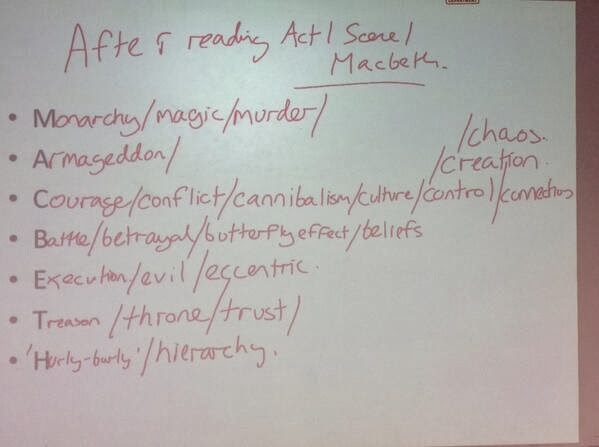 After reading Act 1 Scene 1
Macbeth.
• Monarchy/magic/murder/
/chaos.
• Armageddon/
/creation.
• Courage/conflict/cannibalism/culture/control/connections
• Battle/betrayal/butterfly effect/beliefs
• Execution/evil/eccentric.
• Treason/throne/trust/
• 'Hurly-burly'/hierarchy.